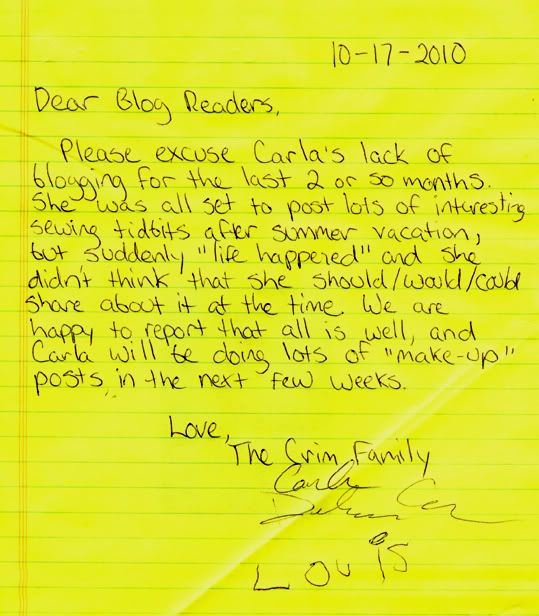 10-17-2010
Dear Blog Readers,
Please excuse Carla's lack of
blogging for the last 2 or so months.
She was all set to post lots of interesting
sewing tidbits after summer vacation,
but suddenly "life happened" and she
didn't think that she should/would/could
share about it at the time. We are
happy to report that all is well, and
Carla will be doing lots of "make-up"
posts in the next few weeks.
Love,
The Crim Family
Carla
LOUIS